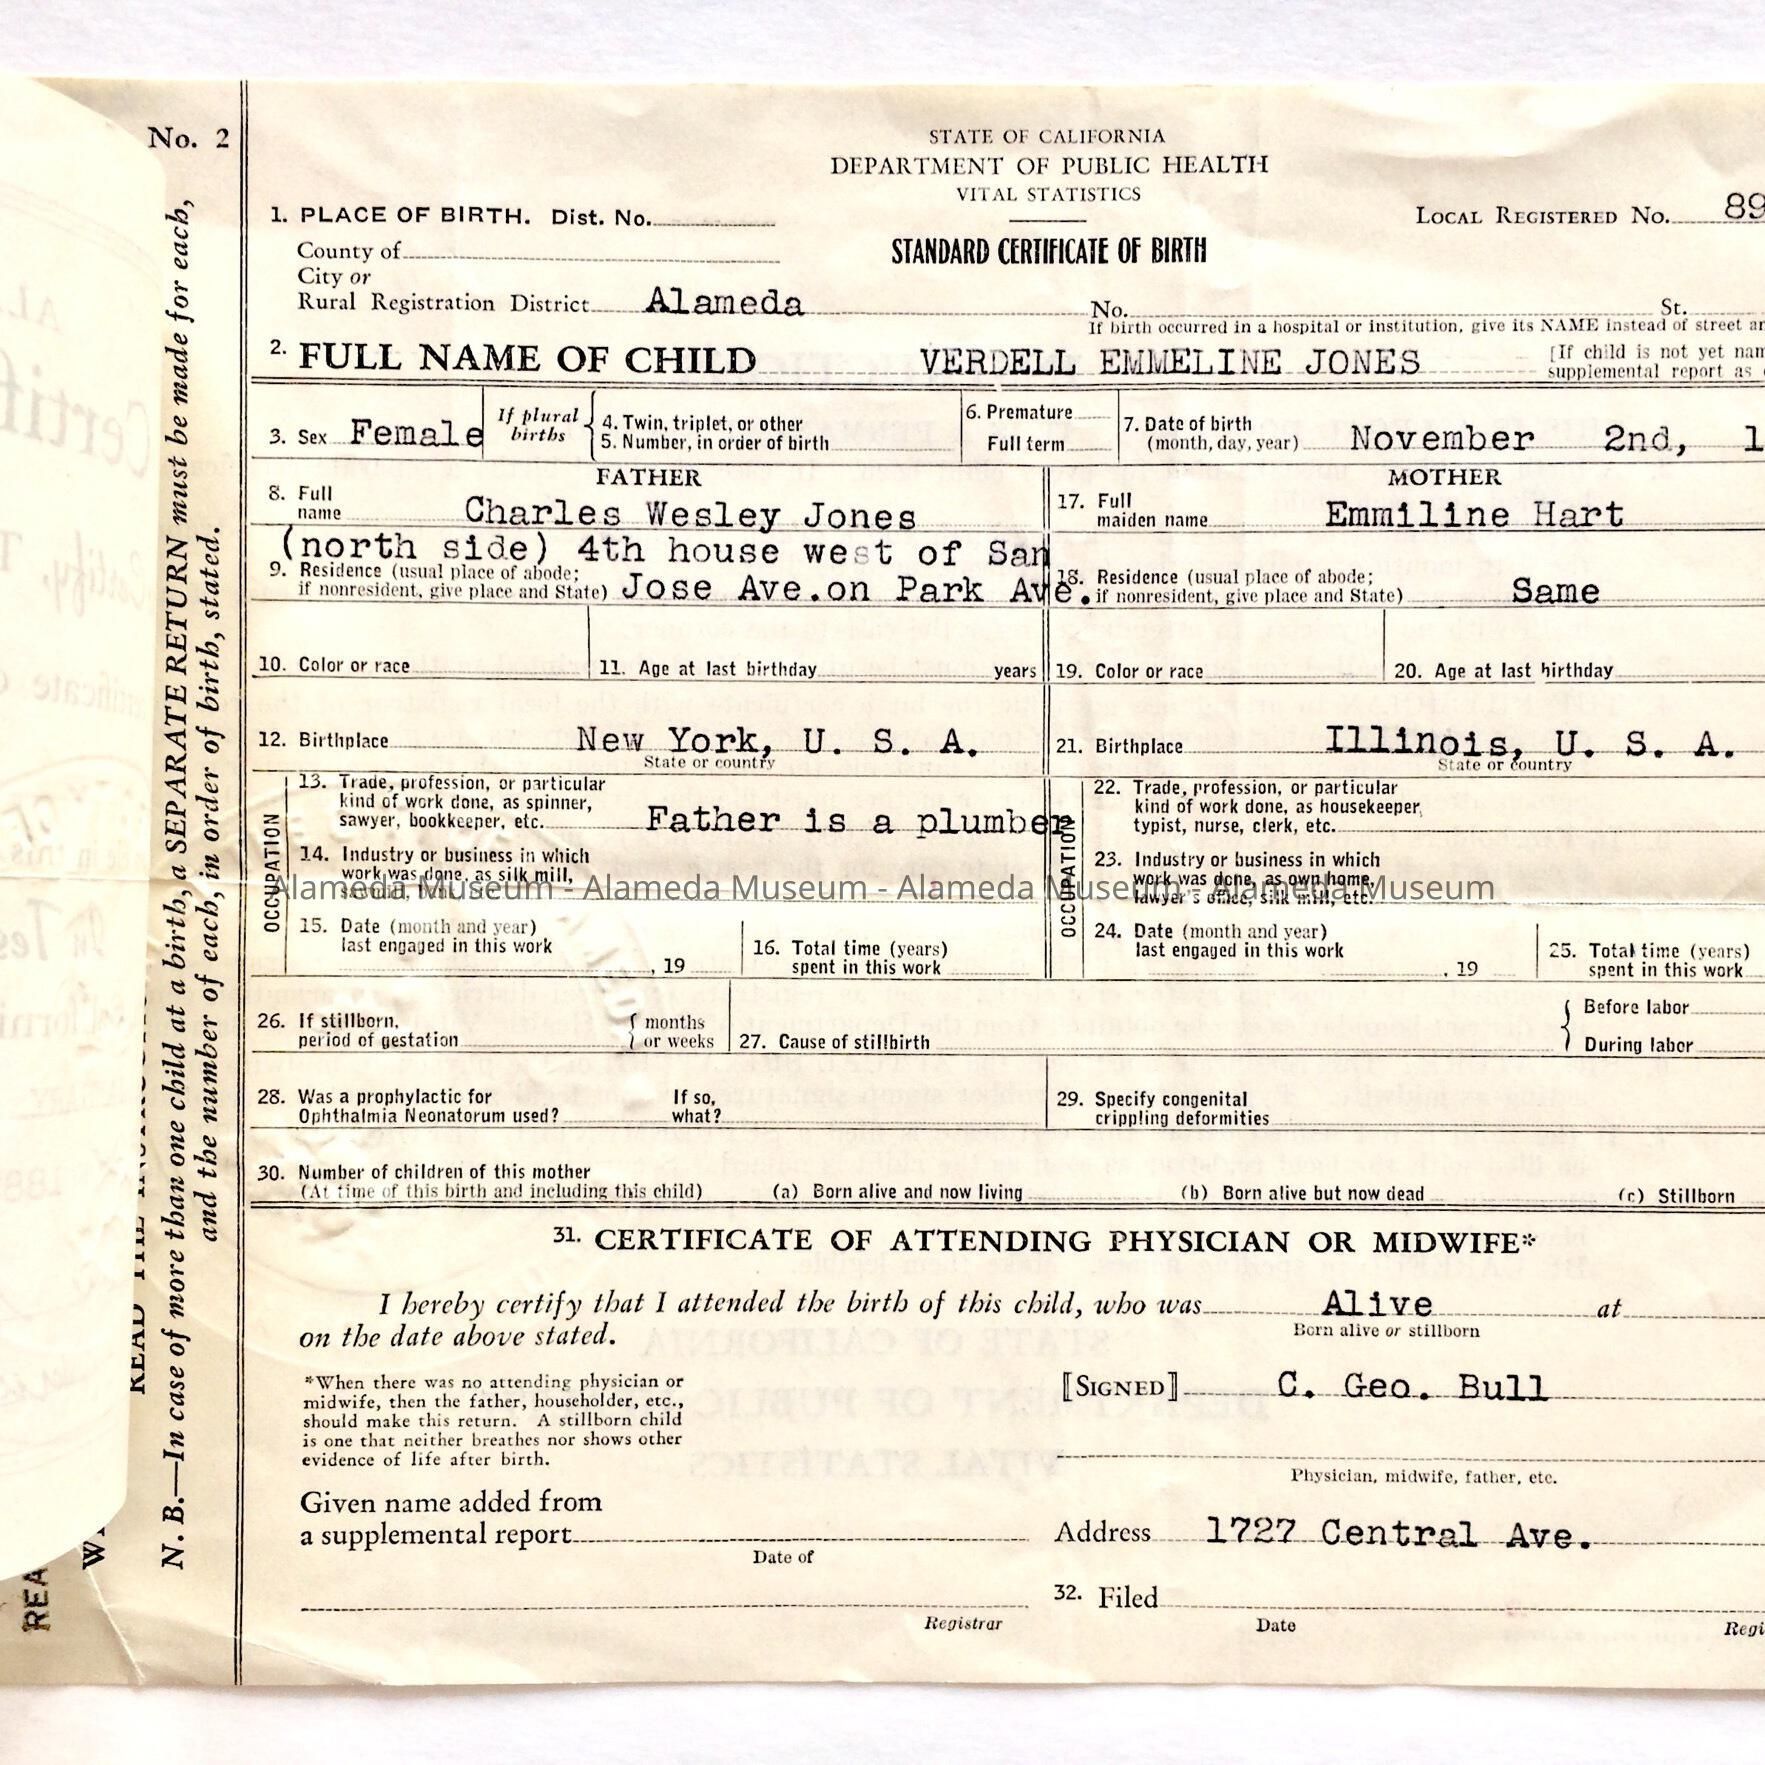 No. 2
STATE OF CALIFORNIA
DEPARTMENT OF PUBLIC HEALTH
VITAL STATISTICS
1. PLACE OF BIRTH. Dist. No.
LOCAL REGISTERED No. 89
County of
STANDARD CERTIFICATE OF BIRTH
City or
Rural Registration District Alameda
No. St.
If birth occurred in a hospital or institution, give its NAME instead of street
2. FULL NAME OF CHILD VERDELL EMMELINE JONES
[If child is not yet
supplemental report as
3. Sex Female
If plural births
4. Twin, triplet, or other
5. Number, in order of birth
6. Premature
Full term
7. Date of birth
(month, day, year) November 2nd, 1
FATHER
8. Full
name Charles Wesley Jones
(north side) 4th house west of San
9. Residence (usual place of abode;
if nonresident, give place and State) Jose Ave.on Park Ave.
10. Color or race
11. Age at last birthday years
12. Birthplace New York, U. S. A.
State or country
OCCUPATION
13. Trade, profession, or particular
kind of work done, as spinner,
sawyer, bookkeeper, etc. Father is a plumber
14. Industry or business in which
work was done, as silk mill,
15. Date (month and year)
last engaged in this work , 19
16. Total time (years)
spent in this work
MOTHER
17. Full
maiden name Emmiline Hart
18. Residence (usual place of abode;
if nonresident, give place and State) Same
19. Color or race
20. Age at last birthday
21. Birthplace Illinois, U. S. A.
State or country
OCCUPATION
22. Trade, profession, or particular
kind of work done, as housekeeper,
typist, nurse, clerk, etc.
23. Industry or business in which
work was done, as own home,
lawyer's office, silk mill, etc.
24. Date (month and year)
last engaged in this work , 19
25. Total time (years)
spent in this work
Alameda Museum - Alameda Museum - Alameda Museum - Alameda Museum
26. If stillborn,
period of gestation
months
or weeks
27. Cause of stillbirth
Before labor
During labor
28. Was a prophylactic for
Ophthalmia Neonatorum used?
If so,
what?
29. Specify congenital
crippling deformities
30. Number of children of this mother
(At time of this birth and including this child) (a) Born alive and now living (b) Born alive but now dead (c) Stillborn
31. CERTIFICATE OF ATTENDING PHYSICIAN OR MIDWIFE*
I hereby certify that I attended the birth of this child, who was Alive at
Born alive or stillborn
on the date above stated.
*When there was no attending physician or
midwife, then the father, householder, etc.,
should make this return. A stillborn child
is one that neither breathes nor shows other
evidence of life after birth.
[SIGNED] C. Geo. Bull
Physician, midwife, father, etc.
Given name added from
a supplemental report
Date of
Registrar
Address 1727 Central Ave.
32. Filed
Date
N. B.—In case of more than one child at a birth, a SEPARATE RETURN must be made for each,
and the number of each, in order of birth, stated.
READ THE